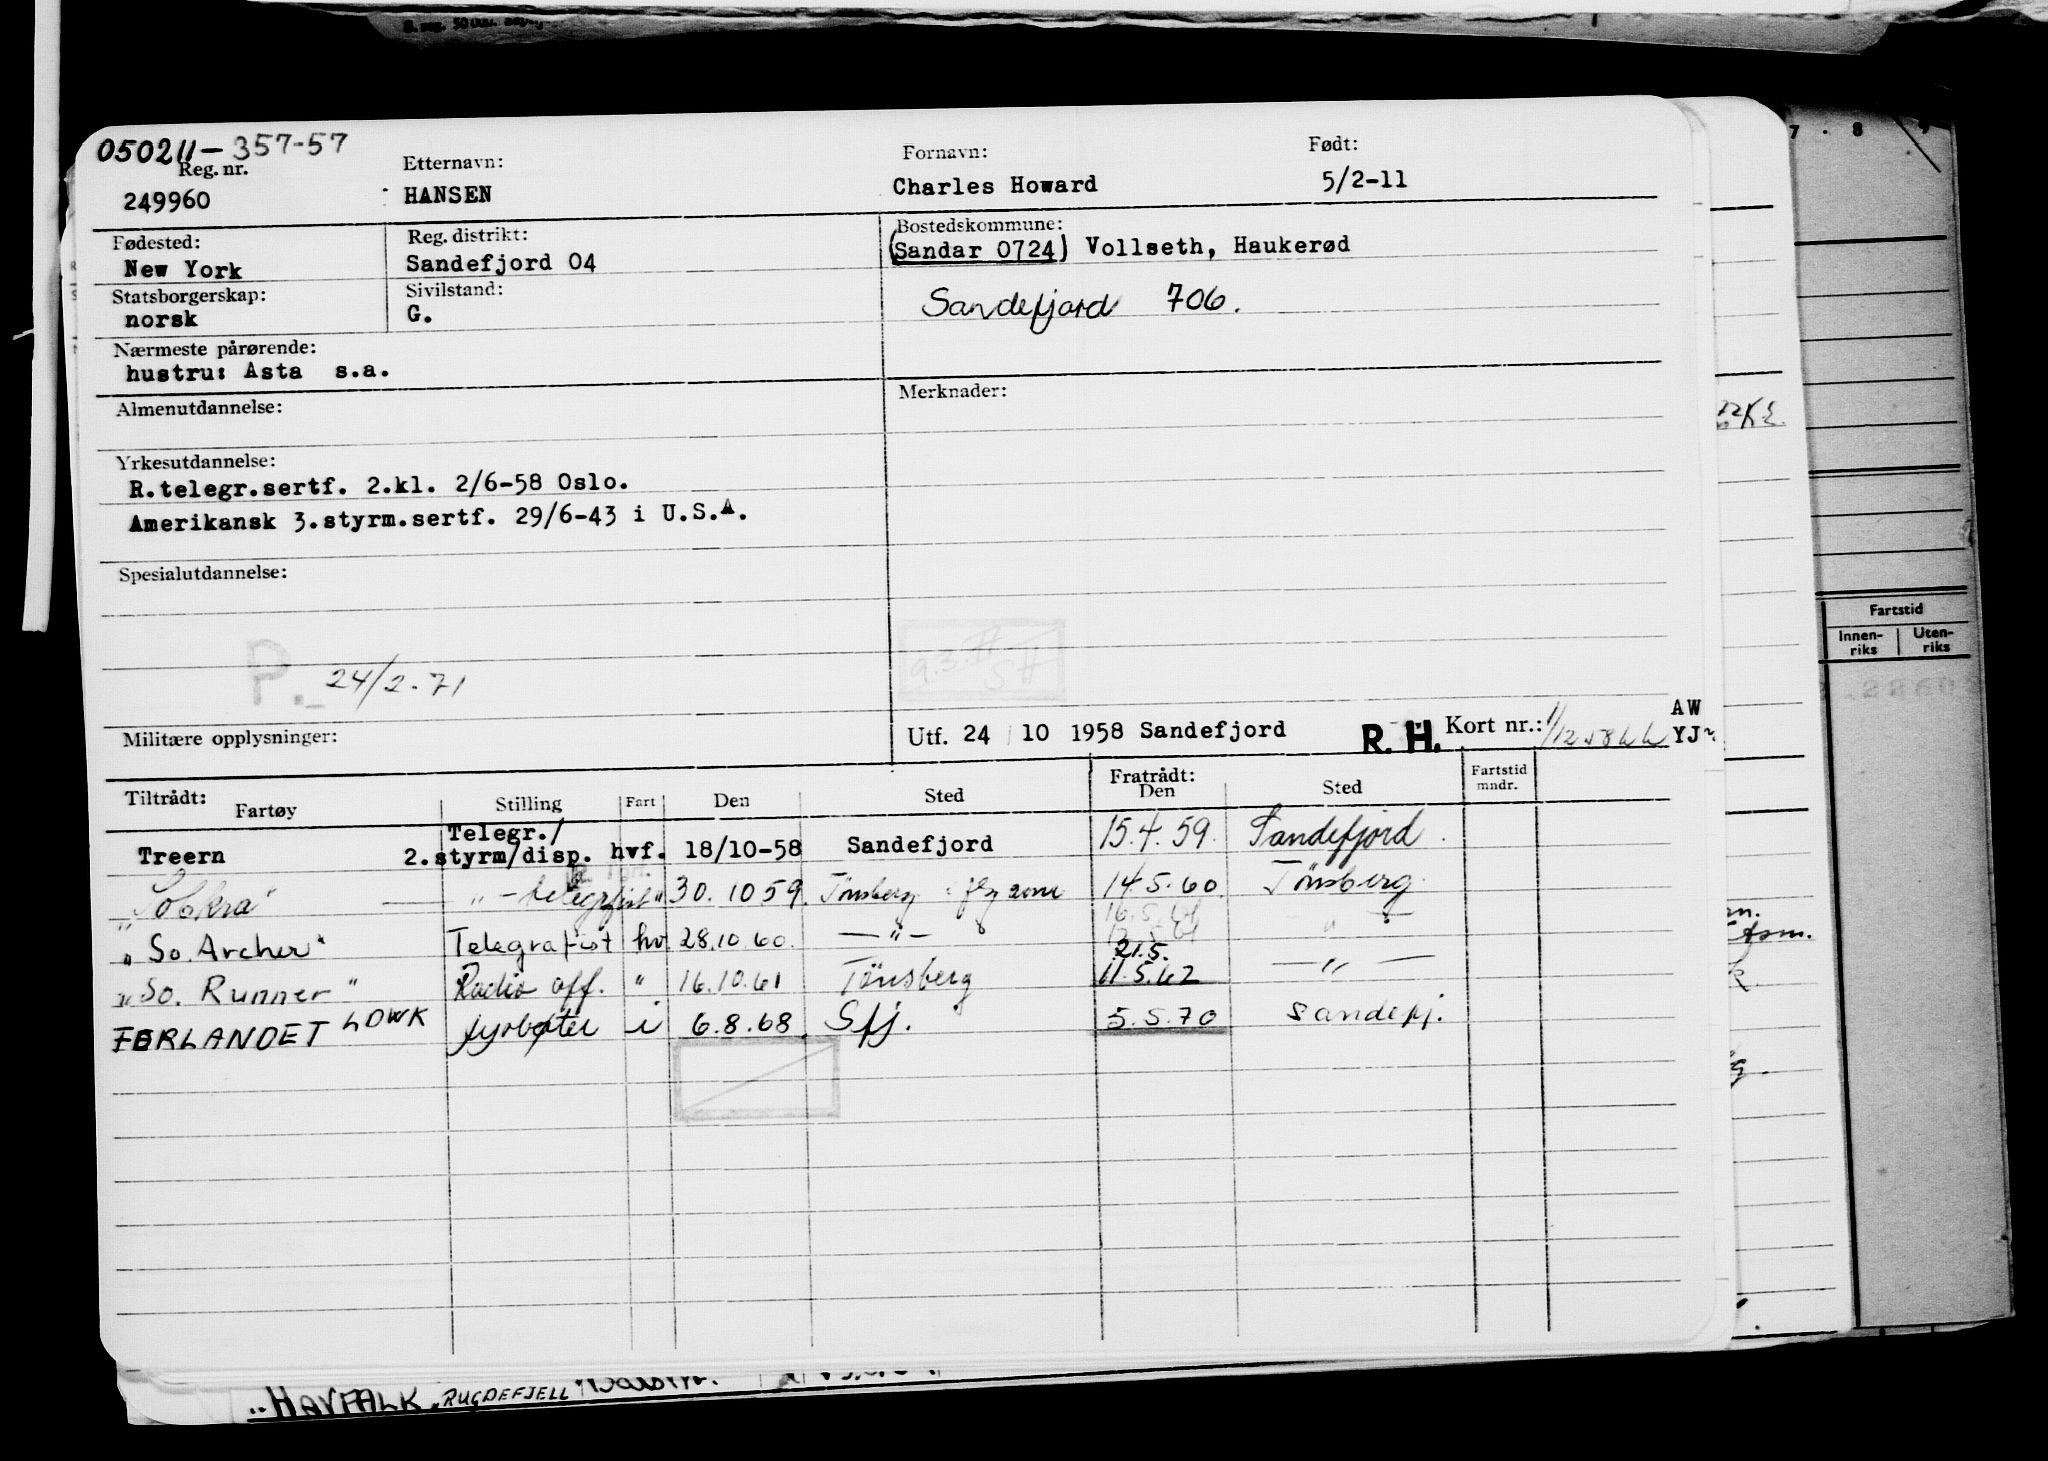 050211-357-57
Reg. nr. Etternavn: Fornavn: Født:
249960 HANSEN Charles Howard 5/2-11
Fødested: Reg. distrikt: Bostedskommune:
New York Sandefjord 04 (Sandar 0724) Vollseth, Haukerød
Statsborgerskap: Sivilstand:
norsk G. Sandefjord 706.
Nærmeste pårørende:
hustru: Asta s.a.
Almenutdannelse: Merknader:
Yrkesutdannelse:
R.telegr.sertf. 2.kl. 2/6-58 Oslo.
Amerikansk 3.styrm.sertf. 29/6-43 i U.S.A.
Spesialutdannelse:
P. 24/2.71
Militære opplysninger: Utf. 24 10 1958 Sandefjord R.H. Kort nr.: AW
YJ
Tiltrådt: Fratrådt:
Fartøy Stilling Fart Den Sted Den Sted Fartstid mndr.
Treern Telegr./ 2.styrm/disp. hvf. 18/10-58 Sandefjord 15.4.59. Sandefjord.
"Sobkra" " - telegrfist " 30.10 59. Tønsberg 14.5.60 Tønsberg
"So. Archer" Telegrafist hv 28.10.60. — " — 21.5. "
"So. Runner" Radio off. " 16.10.61 Tönsberg 11.5.62 — " —
FØRLANDET LDWK fyrbøter i 6.8.68. Sfj. 5.5.70 Sandefj.
Fartstid
Innenriks Utenriks
HAVFALK RUGDEFJELL